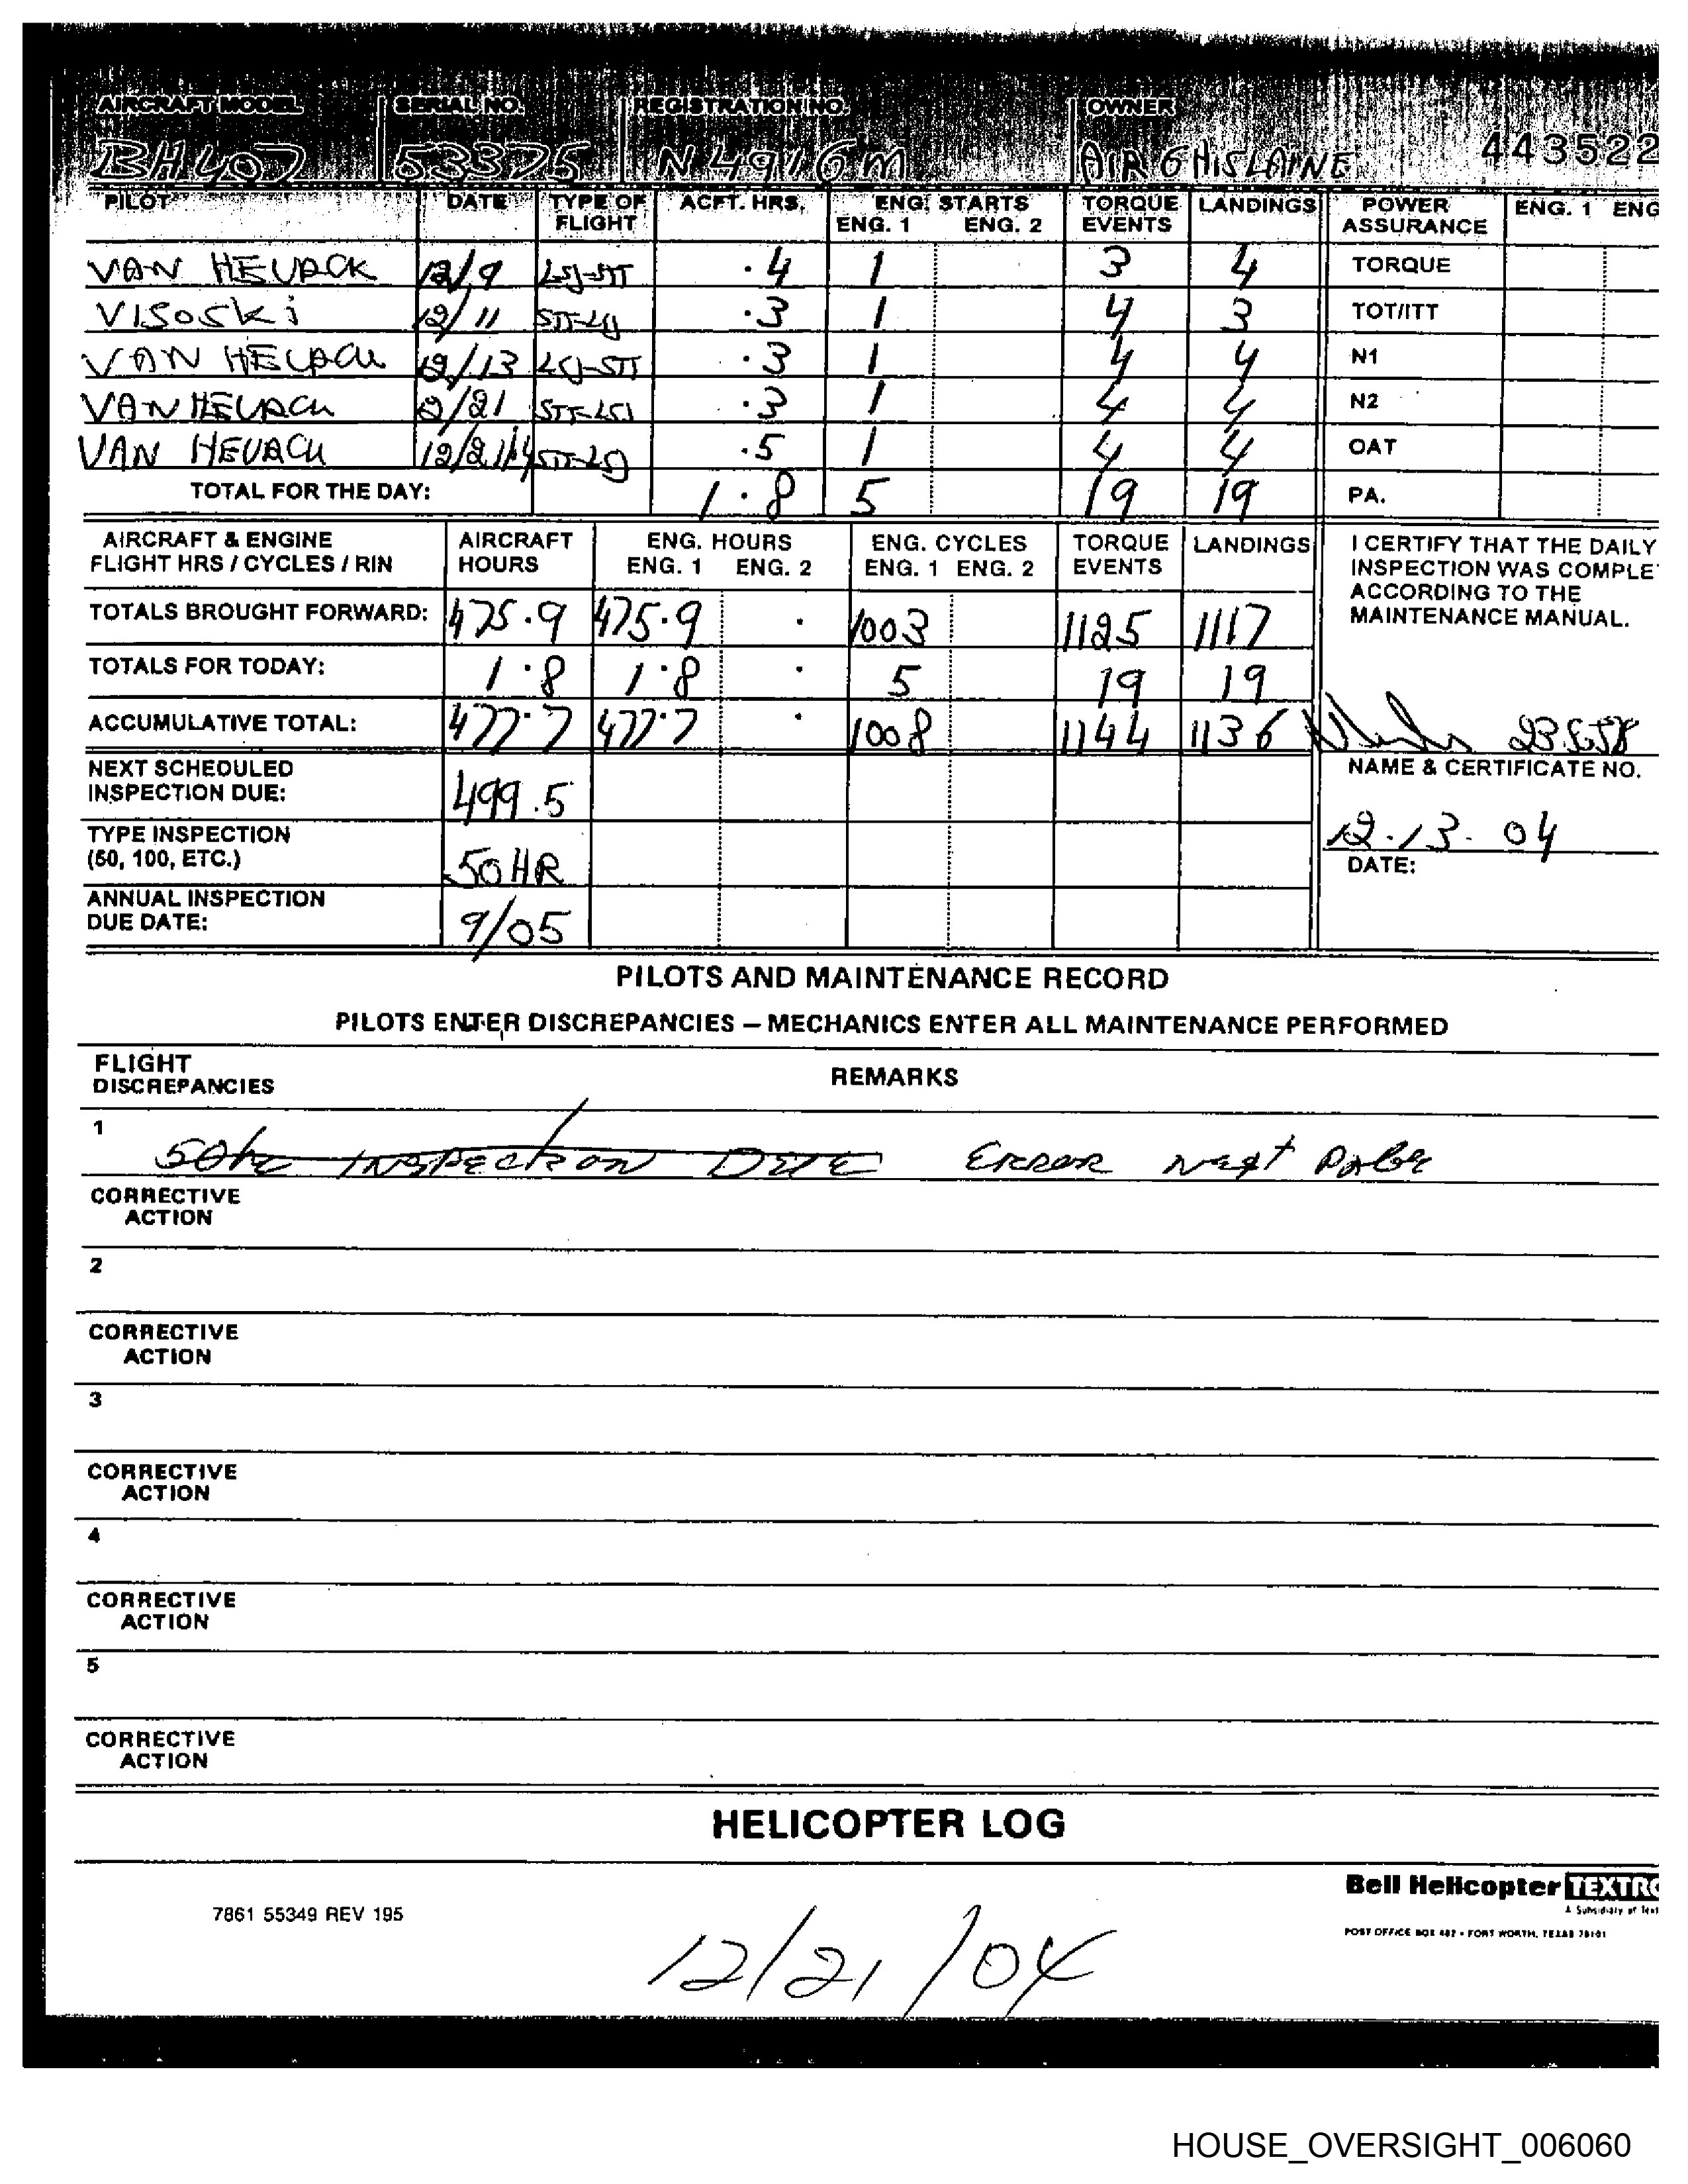 AIRCRAFT MODEL SERIAL NO. REGISTRATION NO. OWNER
BH407 53375 N4916M AIR GHISLAINE 443522
PILOT DATE TYPE OF FLIGHT ACFT. HRS. ENG. STARTS ENG. 1 ENG. 2 TORQUE EVENTS LANDINGS POWER ASSURANCE ENG. 1 ENG
VAN HEVACK 12/9 LSJ-STT .4 1 3 4 TORQUE
VISOSKI 12/11 STT-LSJ .3 1 4 3 TOT/ITT
VAN HEVACH 12/13 LSJ-STT .3 1 4 4 N1
VAN HEVACH 12/21 STT-LSJ .3 1 4 4 N2
VAN HEVACH 12/21/04 STT-LSJ .5 1 4 4 OAT
TOTAL FOR THE DAY: 1.8 5 19 19 PA.
AIRCRAFT & ENGINE FLIGHT HRS / CYCLES / RIN AIRCRAFT HOURS ENG. HOURS ENG. 1 ENG. 2 ENG. CYCLES ENG. 1 ENG. 2 TORQUE EVENTS LANDINGS
I CERTIFY THAT THE DAILY
INSPECTION WAS COMPLE
ACCORDING TO THE
MAINTENANCE MANUAL.
TOTALS BROUGHT FORWARD: 475.9 475.9 . 1003 1125 1117
TOTALS FOR TODAY: 1.8 1.8 . 5 19 19
ACCUMULATIVE TOTAL: 477.7 477.7 . 1008 1144 1136
NAME & CERTIFICATE NO.
NEXT SCHEDULED INSPECTION DUE: 499.5
12.13.04
DATE:
TYPE INSPECTION (50, 100, ETC.) 50 HR
ANNUAL INSPECTION DUE DATE: 9/05
PILOTS AND MAINTENANCE RECORD
PILOTS ENTER DISCREPANCIES – MECHANICS ENTER ALL MAINTENANCE PERFORMED
FLIGHT DISCREPANCIES REMARKS
1 50hr INSPECTION DUE ERROR next
CORRECTIVE ACTION
2
CORRECTIVE ACTION
3
CORRECTIVE ACTION
4
CORRECTIVE ACTION
5
CORRECTIVE ACTION
HELICOPTER LOG
Bell Helicopter TEXTRO
A Subsidiary of Text
7861 55349 REV 195
POST OFFICE BOX 482 • FORT WORTH, TEXAS 76101
12/21/04
HOUSE_OVERSIGHT_006060